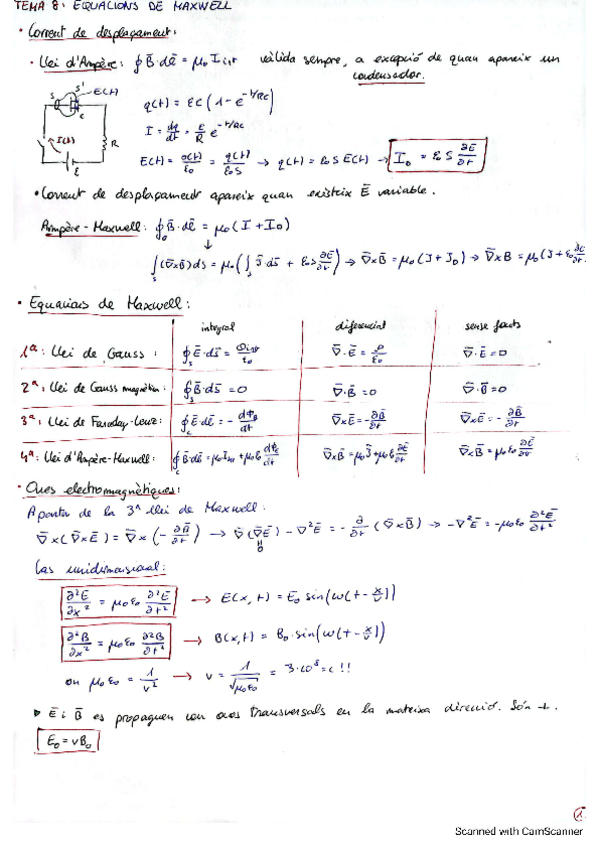 TEMA 8: EQUACIONS DE MAXWELL
• Corrent de desplaçament:
• Llei d'Ampère: ∮ B̄·dē = μ₀ I int vàlida sempre, a excepció de quan apareix un
condensador.
S S' E(t)
C
I(t) R
ε
q(t) = εC (1 - e^{-t/RC})
I = dq/dt = ε/R e^{-t/RC}
E(t) = σ(t)/ε₀ = q(t)/ε₀S → q(t) = ε₀ S E(t) → I_D = ε₀ S ∂E/∂t
• Corrent de desplaçament apareix quan existeix Ē variable.
Ampère-Maxwell: ∮ B̄·dē = μ₀ (I + I_D)
↓
∫_S (∇̄×B̄) ds = μ₀ (∫_S J̄·ds + ε₀S ∂Ē/∂t) → ∇̄×B̄ = μ₀ (J + J_D) → ∇̄×B = μ₀ (J + ε₀
• Equacions de Maxwell:
integral diferencial sense fonts
1ª: Llei de Gauss: ∮_S Ē·ds = Qint/ε₀ ∇̄·Ē = ρ/ε₀ ∇̄·Ē = 0
2ª: Llei de Gauss magnètica: ∮_S B̄·ds = 0 ∇̄·B̄ = 0 ∇̄·B̄ = 0
3ª: Llei de Faraday-Lenz: ∮_C Ē·dē = - dΦ_B/dt ∇̄×Ē = - ∂B̄/∂t ∇̄×Ē = - ∂B̄/∂t
4ª: Llei d'Ampère-Maxwell: ∮_C B̄·dē = μ₀ I int + μ₀ε₀ dΦ_E/dt ∇̄×B = μ₀ J̄ + μ₀ε₀ ∂Ē/∂t ∇̄×B̄ = μ₀ε₀ ∂Ē/∂t
• Ones electromagnètiques:
A partir de la 3ª llei de Maxwell:
∇̄×(∇̄×Ē) = ∇̄×(- ∂B̄/∂t) → ∇̄(∇̄Ē) - ∇²Ē = - ∂/∂t (∇̄×B̄) → -∇²Ē = -μ₀ε₀ ∂²Ē/∂t²
0
Cas unidimensional:
∂²E/∂x² = μ₀ε₀ ∂²E/∂t² → E(x,t) = E₀ sin(ω(t - x/v))
∂²B/∂x² = μ₀ε₀ ∂²B/∂t² → B(x,t) = B₀·sin(ω(t - x/v))
on μ₀ε₀ = 1/v² → v = 1/√μ₀ε₀ = 3·10⁸ = c !!
Ē i B̄ es propaguen com ones transversals en la mateixa direcció. Són ⊥.
E₀ = vB₀
1
Scanned with CamScanner